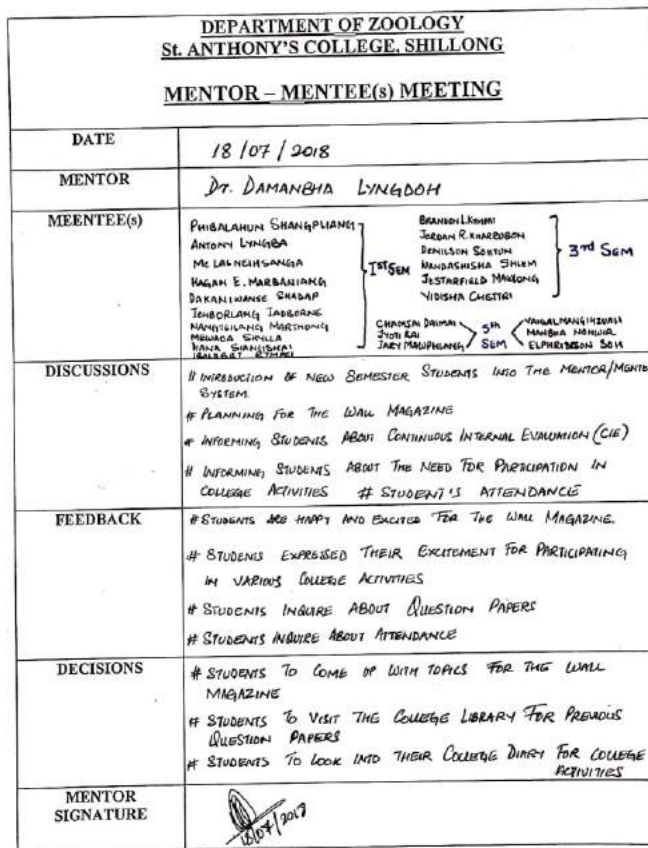 DEPARTMENT OF ZOOLOGY
St. ANTHONY'S COLLEGE, SHILLONG
MENTOR – MENTEE(s) MEETING
DATE
18/07/2018
MENTOR
Dr. DAMANBHA LYNGDOH
MEENTEE(s)
PHIBALAHUN SHANGPLIANG
ANTONY LYNGBA
MC LALNEIHSANGA
HAGAN E. MARBANIANG
DAKANIWANSE SHADAP
IEHBORLANG IADBORNE
NANGTEILANG MARTHONG
MEWADA SHYLLA
HANA SIANGSHAI
Ist SEM
BRANDON L.
JORDAN R. KHARBUBON
DENILSON SOHTUN
WANDASHISHA SHLEM
JESTARFIELD MAWLONG
VIDISHA CHETTRI
3rd SEM
CHAMSAI DAIMAI
JYOTI RAI
IARY MAWPHLANG
5th
SEM
MANBHA NONGWIR
ELPHRIDSON SOH
DISCUSSIONS
# INTRODUCTION OF NEW SEMESTER STUDENTS INTO THE MENTOR/MENTE
SYSTEM.
# PLANNING FOR THE WALL MAGAZINE
# INFORMING STUDENTS ABOUT CONTINUOUS INTERNAL EVALUATION (CIE)
# INFORMING STUDENTS ABOUT THE NEED FOR PARTICIPATION IN
COLLEGE ACTIVITIES # STUDENT'S ATTENDANCE
FEEDBACK
# STUDENTS ARE HAPPY AND EXCITED FOR THE WALL MAGAZINE.
# STUDENTS EXPRESSED THEIR EXCITEMENT FOR PARTICIPATING
IN VARIOUS COLLEGE ACTIVITIES
# STUDENTS INQUIRE ABOUT QUESTION PAPERS
# STUDENTS INQUIRE ABOUT ATTENDANCE
DECISIONS
# STUDENTS TO COME UP WITH TOPICS FOR THE WALL
MAGAZINE
# STUDENTS TO VISIT THE COLLEGE LIBRARY FOR PREVIOUS
QUESTION PAPERS
# STUDENTS TO LOOK INTO THEIR COLLEGE DIARY FOR COLLEGE
ACTIVITIES
MENTOR
SIGNATURE
18/07/2018